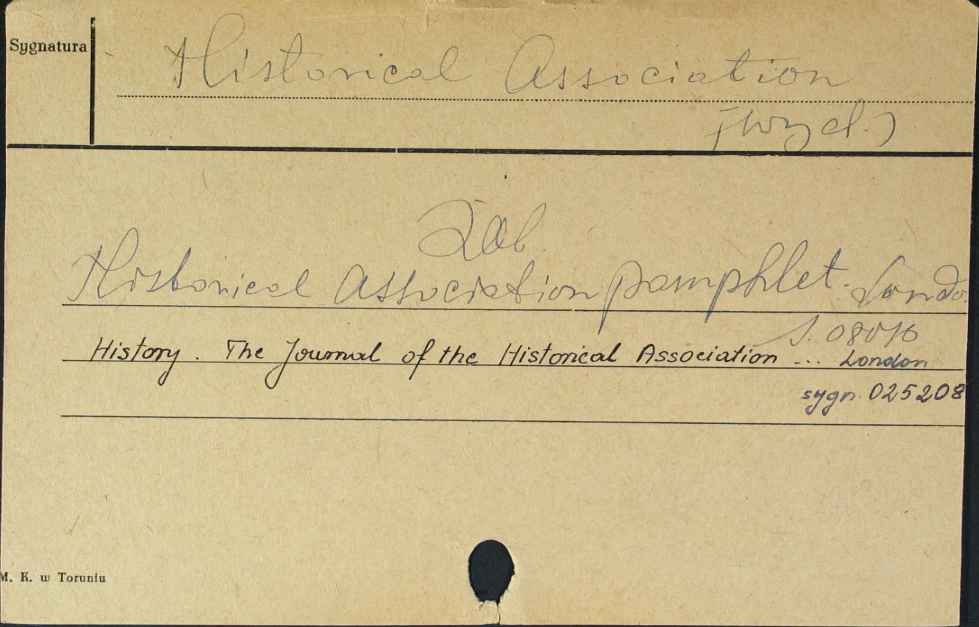 Sygnatura
Historical Association
(wycl.)
Zob.
Historical Association pamphlet. Londo
S. 08076
History. The Journal of the Historical Association ... London
sygn. 025208
M. K. w Toruniu